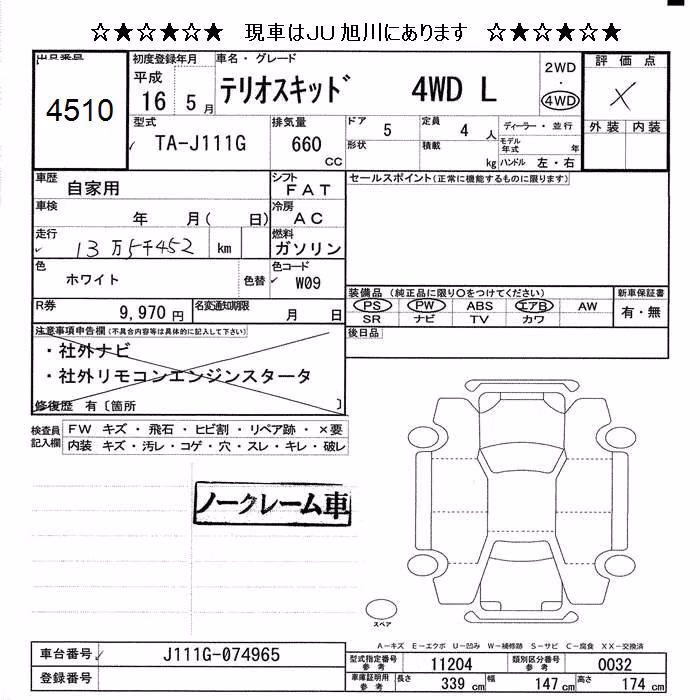 ☆★☆★☆★ 現車はJU旭川にあります ☆★☆★☆★
初度登録年月 車名・グレード 評価点
平成 16 5月 テリオスキッド 4WD L 2WD ・ 4WD X
4510
外装 内装
型式 TA-J111G 排気量 660 CC
ドア 5 定員 4 人 ディーラー・並行
形状 積載 kg モデル年式 年
ハンドル 左・右
車歴 自家用 シフト FAT
セールスポイント(正常に機能するものに限ります)
車検 年 月( 日) 冷房 AC
走行 13万5千452 km 燃料 ガソリン
色 ホワイト 色替 色コード W09
装備品 (純正品に限り○をつけてください) 新車保証書
PS PW ABS エアB AW 有・無
SR ナビ TV カワ
R券 9,970円 名変通知期限 月 日
後日品
注意事項申告欄(不具合内容等は具体的に記入して下さい)
・社外ナビ
・社外リモコンエンジンスタータ
修復歴 有〔箇所 〕
検査員記入欄
FW キズ・飛石・ヒビ割・リペア跡・×要
内装 キズ・汚レ・コゲ・穴・スレ・キレ・破レ
ノークレーム車
スペア
A-キズ E-エクボ U-凹み W-補修跡 S-サビ C-腐食 XX-交換済
車台番号 J111G-074965
登録番号
型式指定番号 参考 11204 類別区分番号 参考 0032
車庫証明用 参考 長さ 339 cm 幅 147 cm 高さ 174 cm